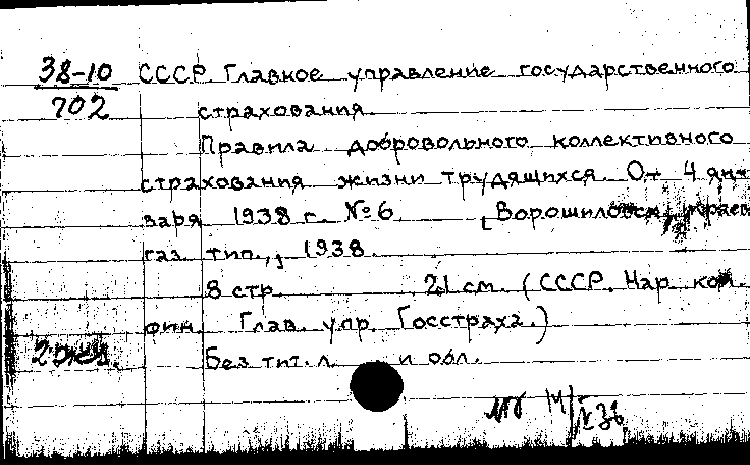 38-10 СССР. Главное управление государственного
702 страхования.
Правила добровольного коллективного
страхования жизни трудящихся. От 4 ян-
варя 1938 г. №6. [Ворошиловск, краев.
газ. тип., 1938.
8 стр. 21 см. (СССР. Нар. ком.
фин. Глав. упр. Госстраха.)
2 экз. Без тит. л. и обл.